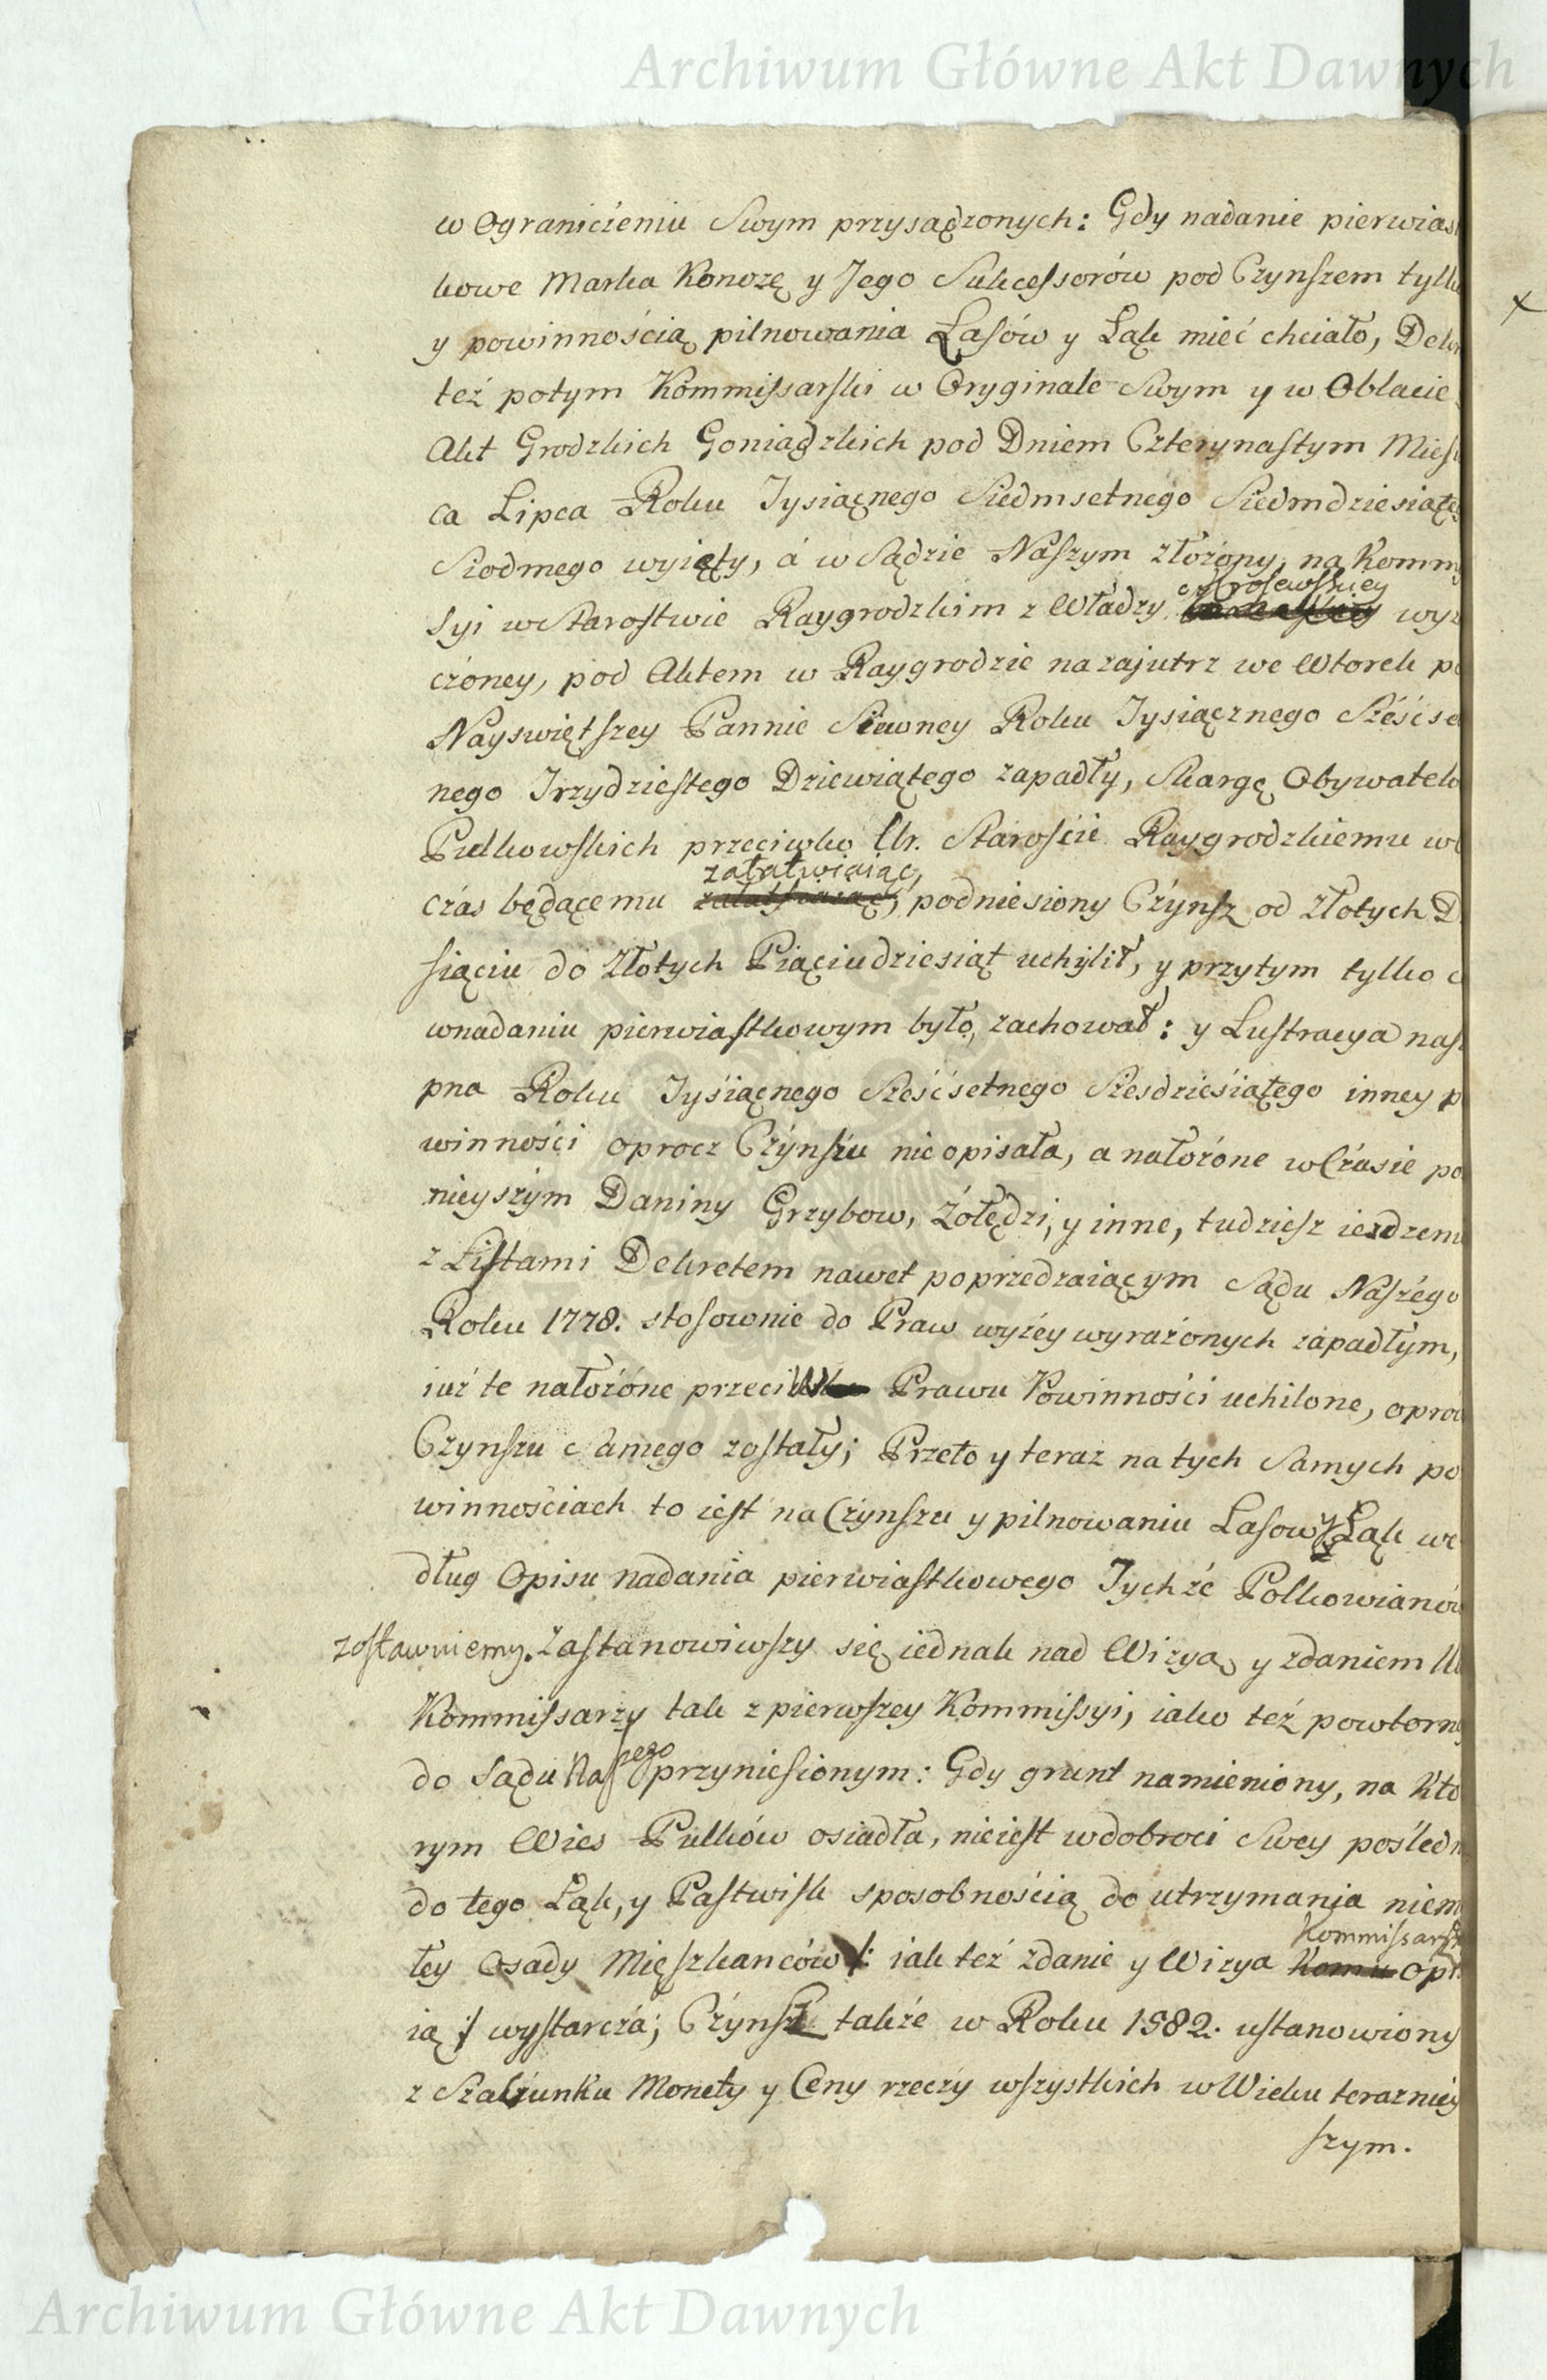 Archiwum Główne Akt Dawnych
w Ograniczeniu Swym przysądzonych: Gdy nadanie pierwiast
kowe Marka Konozę y Jego Sukcessorów pod Czynszem tylko
y powinnością pilnowania Lasów y Łąk mieć chciało, Dekr
też potym Kommissarski w Oryginale Swym y w Oblacie
Akt Grodzkich Goniądzkich pod Dniem Czterynastym Miesi
ca Lipca Roku Tysiącnego Siedmsetnego Siedmdziesiąteg
Siodmego wyięty, á w Sądzie Naszym złożony, na Kommi
syi w Starostwie Raygrodzkim z Władzy Krolewskiey wyz
czóney, pod Aktem w Raygrodzie nazajutrz we Wtorek po
Nayswiętszey Pannie Siewney Roku Tysiącznego Sześćse
nego Trzydziestego Dziewiątego zapadły, Skargę Obywatelo
Pulkowskich przeciwko Ur. Staroście Raygrodzkiemu w
czás będącemu załatwiaiąc, podniesiony Czynsz od złotych D
siąciu do Złotych Piąciudziesiąt uchylił, y przytym tylko c
w nadaniu pierwiastkowym było, zachował: y Lustracya nast
pna Roku Tysiącnego Sześćsetnego Szesdziesiątego inney p
winności oprocz Czynszu nie opisała, a nałożóne w Czasie po
nieyszym Daniny Grzybow, Żołędzi, y inne, tudziesz iezdzeni
z Listami Dekretem nawet poprzedzaiącym Sądu Naszégo
Roku 1778. stosownie do Praw wyżéy wyrażonych zapadłym,
iuż te nałożóne przeciw Prawu Powinności uchilone, oproc
Czynszu Samego zostały; Przeto y teraz na tych Samych po
winnościach to iest na Czynszu y pilnowaniu Lasow y Łąk we
dług Opisu nadania pierwiastkowego Tychże Polkowianów
zostawuiemy. Zastanowiwszy się iednak nad Wizyą y zdaniem U
Kommissarzy tak z pierwszey Kommissyi, iako też powtorn
do Sądu Naszego przyniesionym: Gdy grunt namieniony, na Któ
rym Wies Pulków osiadła, nieiest w dobroci Swey pośledn
do tego Łąk, y Pastwisk sposobnością do utrzymania niem
łey Osady Mięszkanców /: iak też zdanie y Wizya Kommissarz opi
ią :/ wystarcza; Czynsz takze w Roku 1582. ustanowiony
z Szacunku Monety y Ceny rzeczy wszystkich w Wieku teraźniey
szym.
Archiwum Główne Akt Dawnych